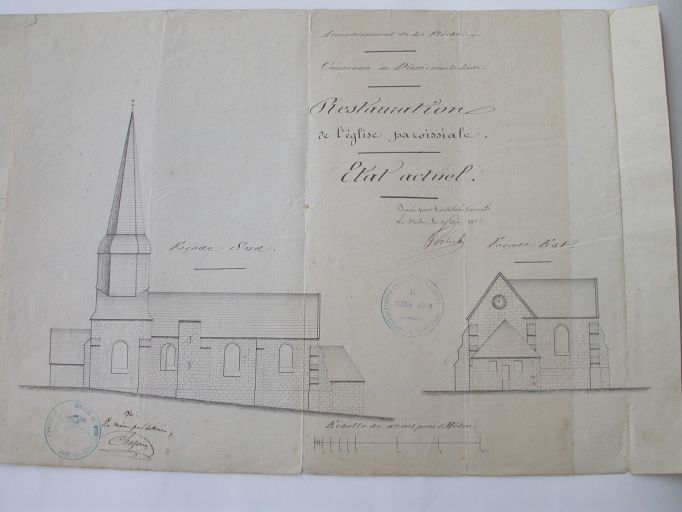 Arrondissement de la Flèche.
Commune de Dissé sous le Lude.
Restauration
de l'église paroissiale.
Etat actuel.
Dressé par l'architecte soussigné
La Flèche le
Façade Sud.
Façade Est.
Vu:
Le maire
Echelle de pour Mètre.